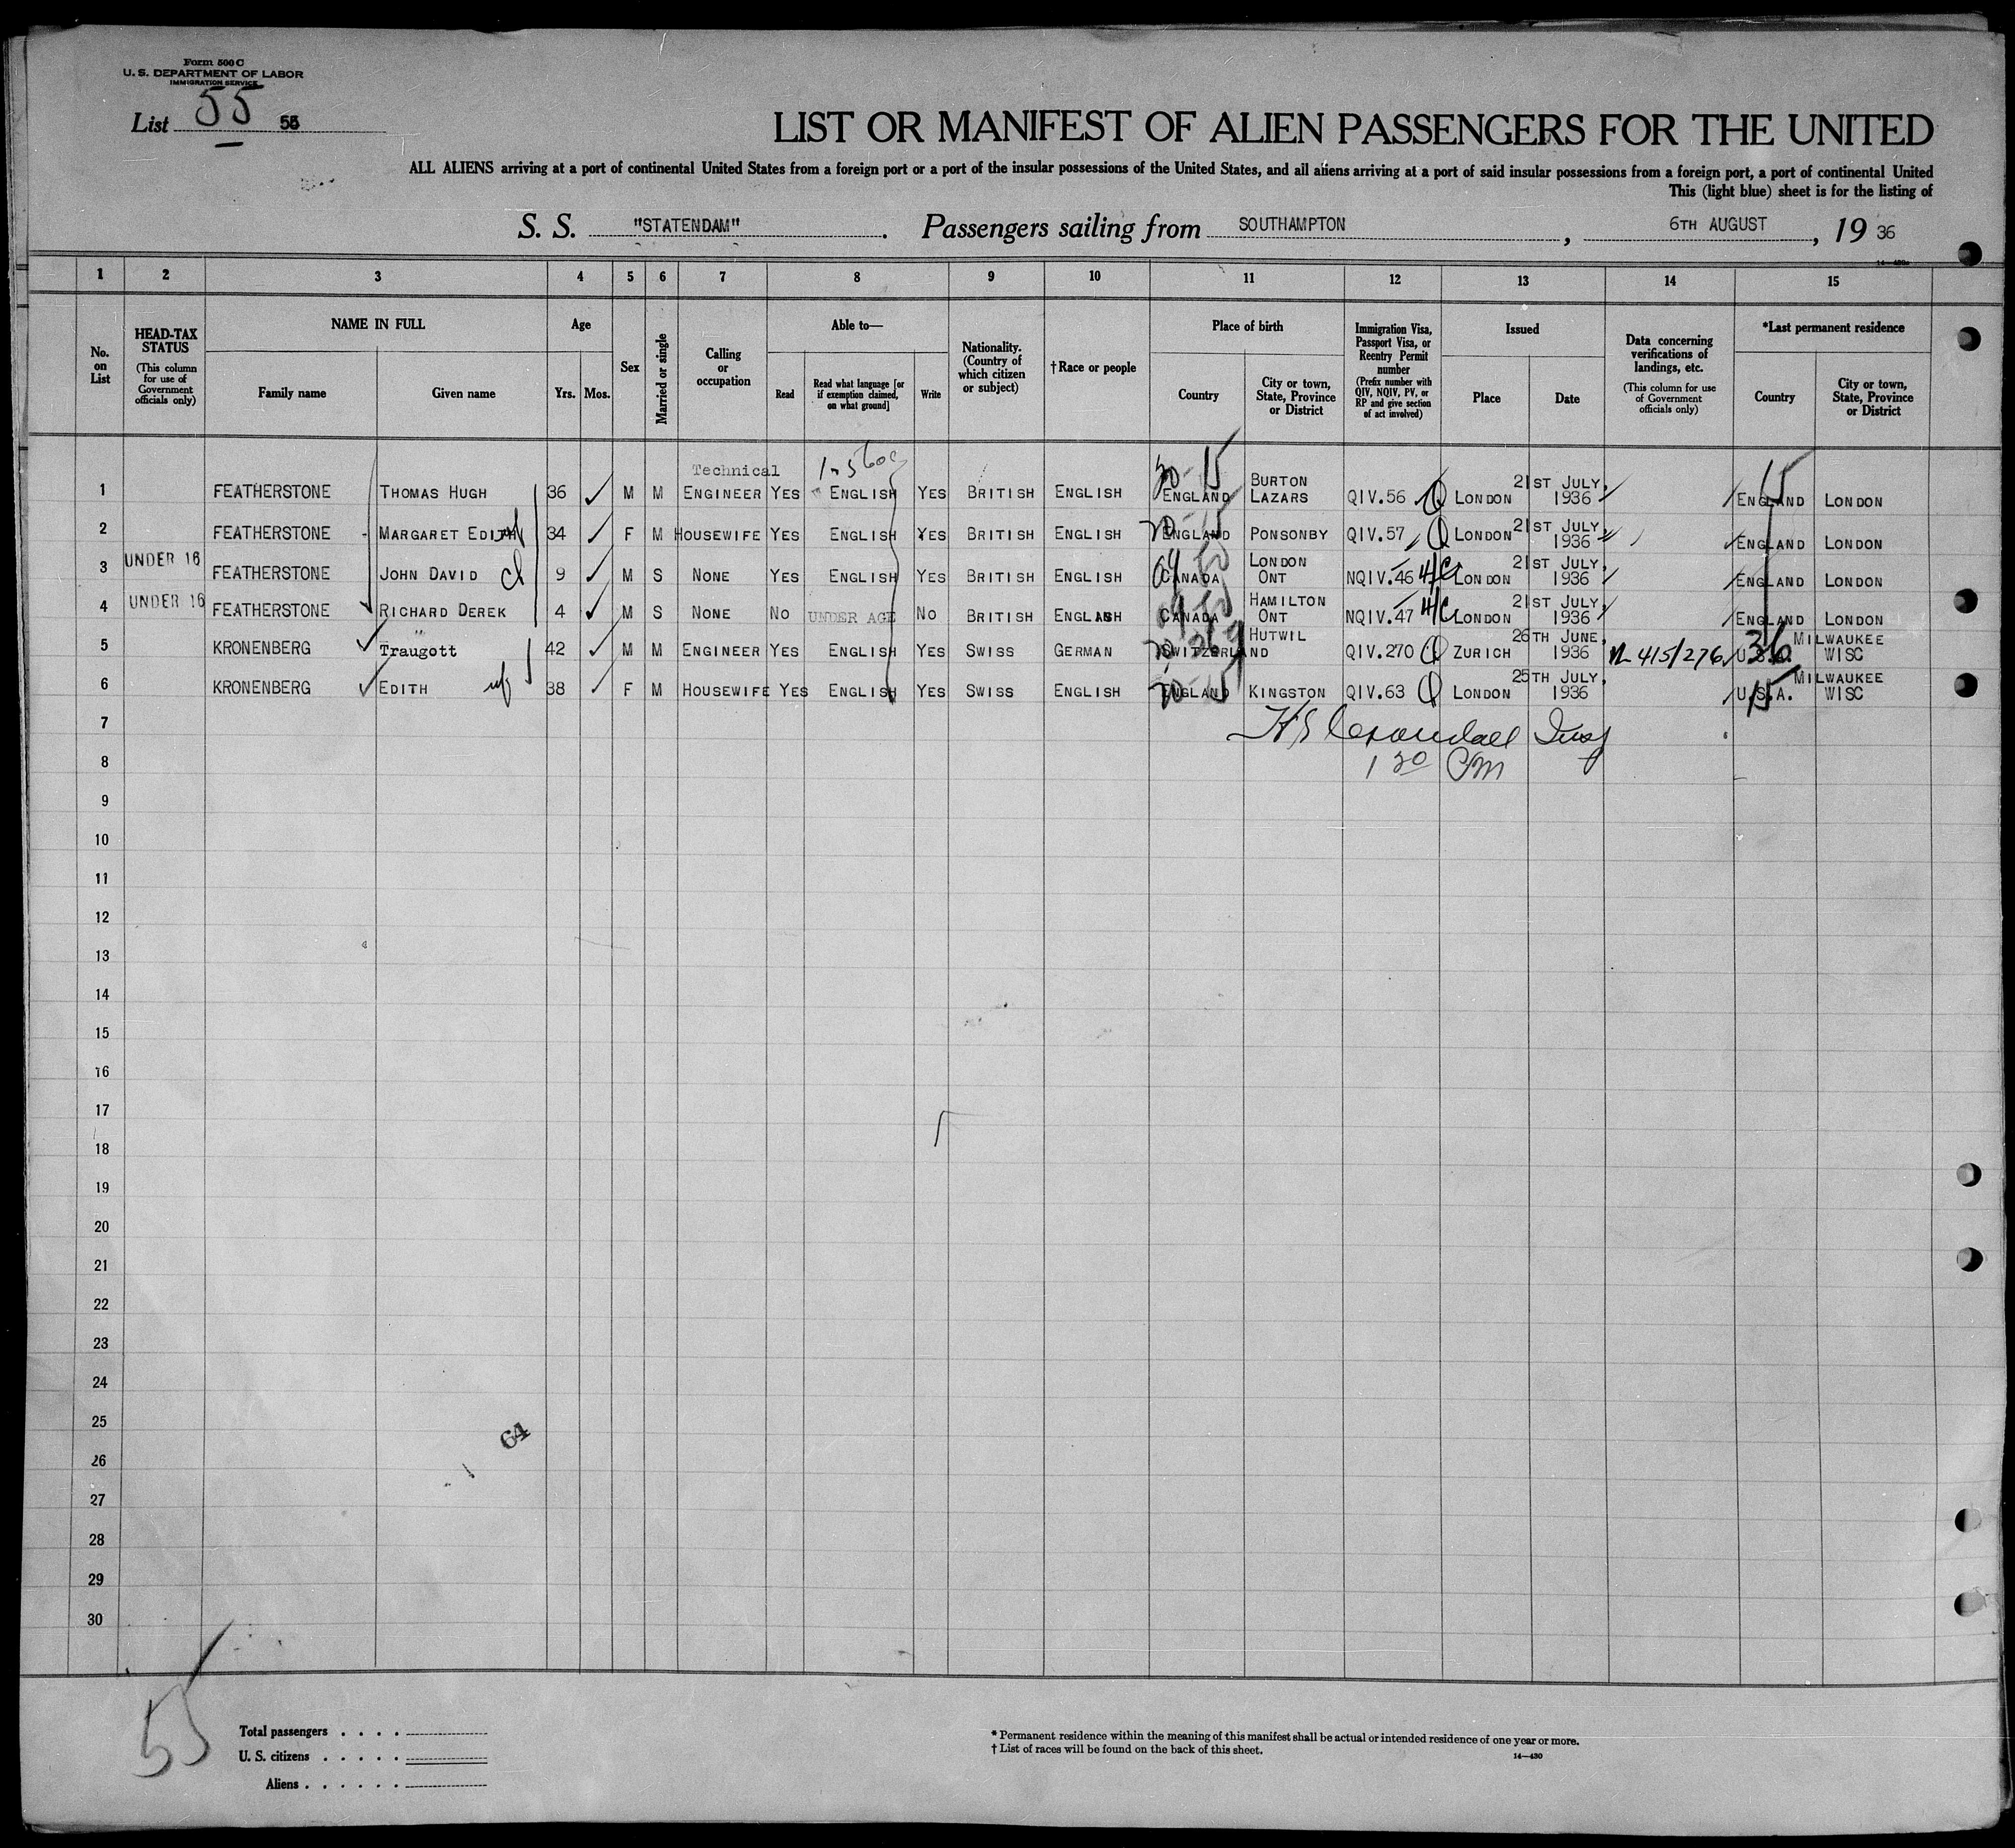 Form 500 C
U. S. DEPARTMENT OF LABOR
IMMIGRATION SERVICE
List 55 55
LIST OR MANIFEST OF ALIEN PASSENGERS FOR THE UNITED
ALL ALIENS arriving at a port of continental United States from a foreign port or a port of the insular possessions of the United States, and all aliens arriving at a port of said insular possessions from a foreign port, a port of continental United
This (light blue) sheet is for the listing of
S. S. "STATENDAM". Passengers sailing from SOUTHAMPTON, 6TH AUGUST, 1936
14—430
1 2 3 4 5 6 7 8 9 10 11 12 13 14 15
No. on List
HEAD-TAX STATUS
(This column for use of Government officials only)
NAME IN FULL
Family name Given name
Age
Yrs. Mos.
Sex
Married or single
Calling or occupation
Able to—
Read Read what language [or if exemption claimed, on what ground] Write
Nationality. (Country of which citizen or subject)
†Race or people
Place of birth
Country City or town, State, Province or District
Immigration Visa, Passport Visa, or Reentry Permit number
(Prefix number with QIV, NQIV, PV, or RP and give section of act involved)
Issued
Place Date
Data concerning verifications of landings, etc.
(This column for use of Government officials only)
*Last permanent residence
Country City or town, State, Province or District
1 FEATHERSTONE THOMAS HUGH 36 M M Technical ENGINEER YES ENGLISH YES BRITISH ENGLISH 20-15 ENGLAND BURTON LAZARS QIV.56 Q LONDON 21ST JULY, 1936 ENGLAND 15 LONDON
2 FEATHERSTONE MARGARET EDITH wf 34 F M HOUSEWIFE YES ENGLISH YES BRITISH ENGLISH 20-15 ENGLAND PONSONBY QIV.57 Q LONDON 21ST JULY, 1936 ENGLAND LONDON
3 UNDER 16 FEATHERSTONE JOHN DAVID cl 9 M S NONE YES ENGLISH YES BRITISH ENGLISH CANADA LONDON ONT NQIV.46 4/C LONDON 21ST JULY, 1936 ENGLAND LONDON
4 UNDER 16 FEATHERSTONE RICHARD DEREK 4 M S NONE NO UNDER AGE NO BRITISH ENGLISH CANADA HAMILTON ONT NQIV.47 4/C LONDON 21ST JULY, 1936 ENGLAND LONDON
5 KRONENBERG Traugott 42 M M ENGINEER YES ENGLISH YES SWISS GERMAN SWITZERLAND HUTWIL QIV.270 Q ZURICH 26TH JUNE, 1936 415/276 U.S.A. 36 MILWAUKEE WISC
6 KRONENBERG EDITH wf 38 F M HOUSEWIFE YES ENGLISH YES SWISS ENGLISH 20-15 ENGLAND KINGSTON QIV.63 Q LONDON 25TH JULY, 1936 U.S.A. 15 MILWAUKEE WISC
7 H S Crandall Insp
8 1 30 PM
9
10
11
12
13
14
15
16
17
18
19
20
21
22
23
24
25
64
26
27
28
29
30
55
Total passengers . . . .
U. S. citizens . . . . .
Aliens . . . . . .
* Permanent residence within the meaning of this manifest shall be actual or intended residence of one year or more.
† List of races will be found on the back of this sheet.
14—430